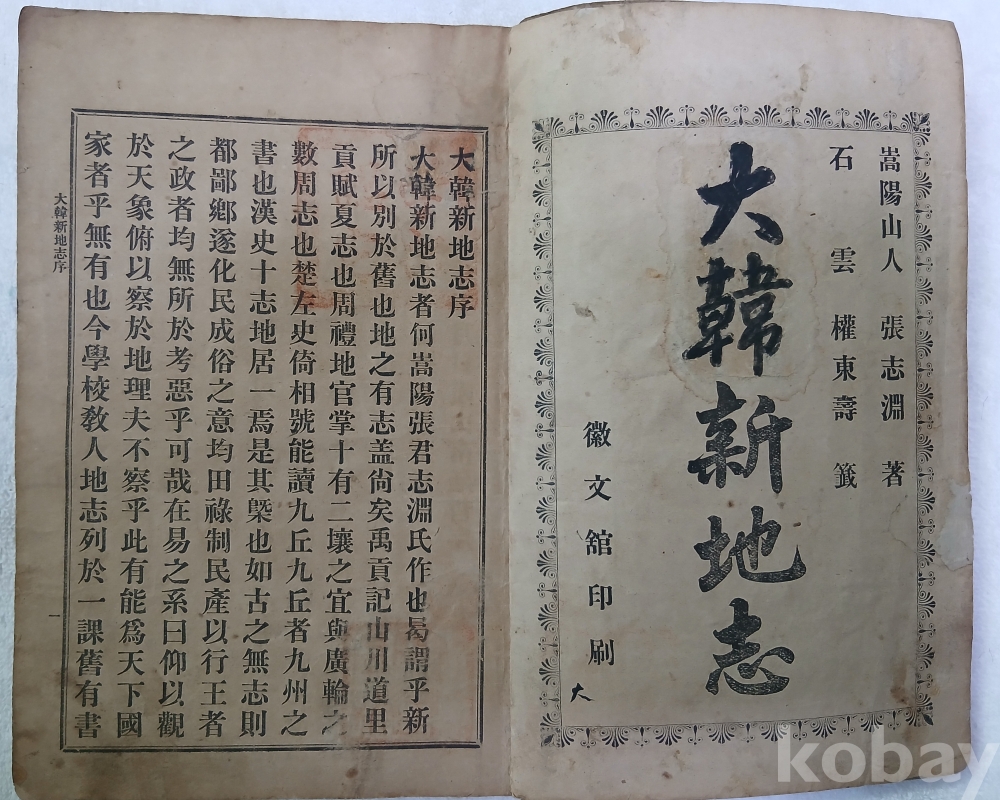 嵩陽山人 張志淵 著
石雲 權東壽 籤
大韓新地志
徽文舘印刷
大
大韓新地志序
大韓新地志者何嵩陽張君志淵氏作也曷謂乎新
所以別於舊也地之有志盖尙矣禹貢記山川道里
貢賦夏志也周禮地官掌十有二壤之宜與廣輪之
數周志也楚左史倚相號能讀九丘九丘者九州之
書也漢史十志地居一焉是其槩也如古之無志則
都鄙鄕遂化民成俗之意均田祿制民產以行王者
之政者均無所於考惡乎可哉在易之系曰仰以觀
於天象俯以察於地理夫不察乎此有能爲天下國
家者乎無有也今學校敎人地志列於一課舊有書
大韓新地志序
一
kobay